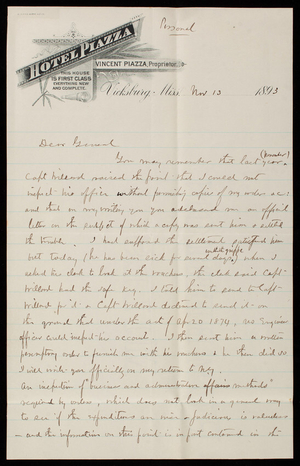 Personal
HOTEL PIAZZA
THIS HOUSE
IS FIRST CLASS
EVERYTHING NEW
AND COMPLETE.
VINCENT PIAZZA, Proprietor.
Vicksburg, Miss Nov 13 1893
Dear General
You may remember that last year (December)
Capt Willard raised the point that I could not
inspect his office without furnishing copies of my orders &c;
and that on my writing you you addressed me an official
letter on the subject of which a copy was sent him & settled
the trouble. I had supposed the settlement satisfied him
but today (he has been sick for several days) when I
asked the clerk to look at the vouchers, the clerk said Capt
Willard had the safe key. I told him to send to Capt
Willard for it & Capt Willard declined to send it on
the ground that under the act of Apr 20 1874, no Engineer
officer could inspect his accounts. I then sent him a written
peremptory order to furnish me with his vouchers & he then did so
I will write you officially on my return to N.Y.
An inspection of business and administrative affairs & methods
required by orders, which does not look in a general way
to see if the expenditures are wise & judicious is valueless
and the information on this point is in part contained in the